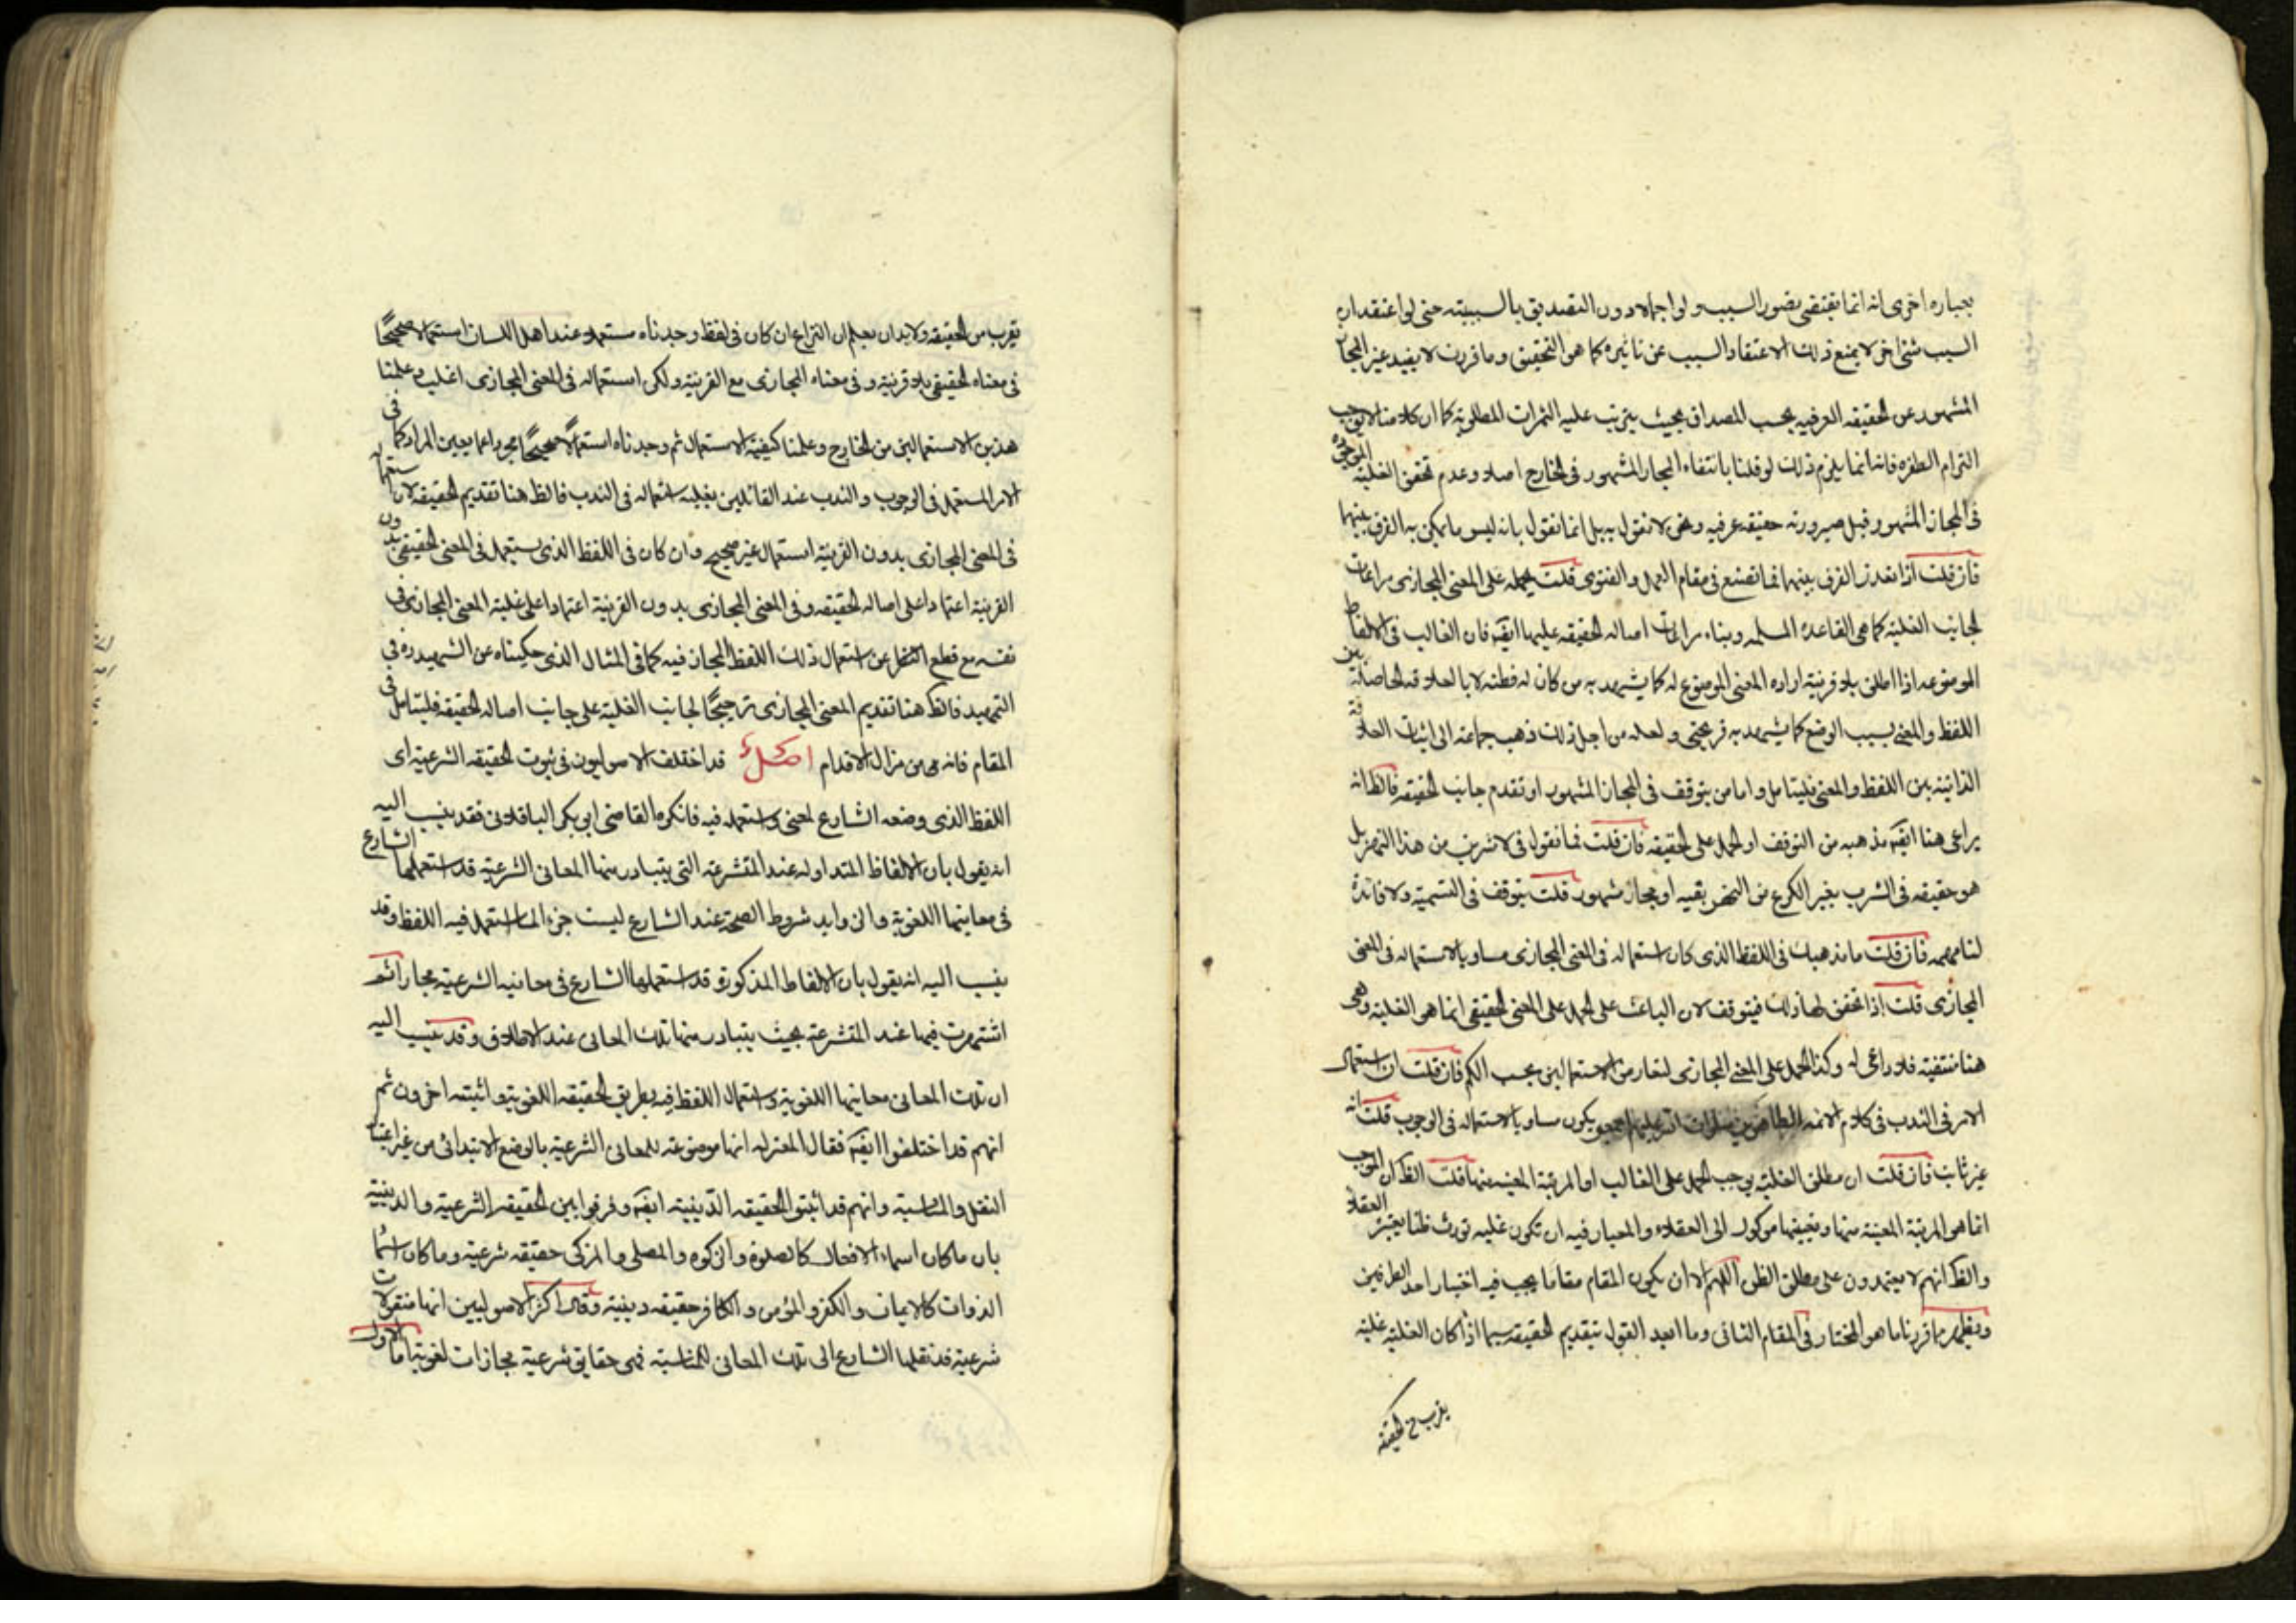 بعباره اخرى انه انما يقتضى تصور السبب ولو اجمالا دون التصديق بالسببيته حتى لو اعتقد ان
السبب شئ اخر لا يمنع ذلك الاعتقاد السبب عن تاثيره كما هو التحقيق وما قررت لا يفيد غير المجاز
المشهور عن الحقيقه العرفيه بحسب المصداق بحيث يترتب عليه الثمرات المطلوبة كما ان كلامنا لا يوجب
التزام الطفره فاننا انما يلزم ذلك لو قلنا بانتفاء المجاز المشهور فى الخارج اصلا وعدم تحقق الغلبة الموجودة
فى المجاز المشهور قبل صيرورته حقيقه عرفيه ونحن لا نقول به بل انما نقول بانه ليس ما يمكن به الفرق بينهما
فان قلت اذا تعذر الفرق بينهما فما تصنع فى مقام العمل والفتوى قلت يحمله على المعنى المجازى مراعات
لجانب الغلبة كما هى القاعدة المسلمه وبناء مراعات اصاله الحقيقه عليها ايضا فان الغالب فى الالفاظ
الموضوعه اذا اطلق بلا قرينة اراده المعنى الموضوع له كما يشهد به من كان له فطنه لا بالعلاقه الحاصلة بين
اللفظ والمعنى بسبب الوضع كما يشهد به قريحتى ولعله من اجل ذلك ذهب جماعة الى اثبات العلاقة
الذاتية بين اللفظ والمعنى فليتامل واما من يتوقف فى المجاز المشهور او تقدم جانب الحقيقه فالظ انه
يراعى هنا ايضا مذهبه من التوقف او الحمل على الحقيقه فان قلت فما نقول فى لاشربن من هذا النهر بل
هو حقيقه فى الشرب بغير الكرع من النهر بقيه او مجاز مشهور قلت نتوقف فى التسمية ولا فائدة
لنا مهمه فان قلت ما مذهبك فى اللفظ الذى كان استعماله فى المعنى المجازى مساويا لاستعماله فى المعنى
المجازى قلت اذا تحقق لها ذلك فيتوقف لان الباعث على الحمل على المعنى الحقيقى انما هو الغلبة وهى
هنا منتفية فلا داعى له وكذا الحمل على المعنى المجازى لتعارض الاحتمالين بحسب الكم فان قلت ان استعمال
الامر فى الندب فى كلام الائمه يكون مساويا لاستعماله فى الوجوب قلت انه
غير ثابت فان قلت ان مطلق الغلبة يوجب الحمل على الغالب او المرتبة المعينه منها قلت الظ ان الموجب
انما هو المرتبة المعينة منها وتعيينها موكول الى العقلاء والمعيار فيه ان تكون غلبه تورث ظنا يعتبره العقلاء
والظ انهم لا يعتمدون على مطلق الظن اللهم الا ان يكون المقام مقاما يجب فيه اختيار احد الطرفين
ويظهر مما قررنا ما هو المختار فى المقام الثانى وما ابعد القول بتقديم الحقيقه سيما اذا كان الغلبة غلبة
يقرب من الحقيقه
تقرب من الحقيقه ولا بد ان يعلم ان النزاع ان كان فى لفظ وجدناه مستعملا عند اهل اللسان استعمالا صحيحًا
فى معناه الحقيقى بلا قرينة وفى معناه المجازى مع القرينة ولكن استعماله فى المعنى المجازى اغلب وعلمنا
هذين الاستعمالين من الخارج وعلمنا كيفية الاستعمال ثم وجدناه استعمالًا صحيحًا مجردا عما يعين المراد كما فى
الامر المستعمل فى الوجوب والندب عند القائلين بغلبة استعماله فى الندب فالظ هنا تقديم الحقيقه لان استعماله
فى المعنى المجازى بدون القرينة استعمال غير صحيح وان كان فى اللفظ الذى يستعمل فى المعنى الحقيقى بدون
القرينة اعتمادا على اصاله الحقيقه وفى المعنى المجازى بدون القرينة اعتمادا على غلبة المعنى المجازى فى
نفسه مع قطع النظر عن استعمال ذلك اللفظ المجاز فيه كما فى المثال الذى حكيناه عن الشهيد ره فى
التمهيد فالظ هنا تقديم المعنى المجازى ترجيحًا لجانب الغلبة على جانب اصاله الحقيقه فليتامل فى
المقام فانه من مزال الاقدام اصل قد اختلف الاصوليون فى ثبوت الحقيقه الشرعية اى
اللفظ الذى وضعه الشارع لمعنى واستعمله فيه فانكره القاضى ابى بكر الباقلانى فقد ينسب اليه
انه يقول بان الالفاظ المتداوله عند المتشرعه التى يتبادر منها المعانى الشرعية قد استعملها الشارع
فى معانيها اللغوية والزوايد شروط الصحة عند الشارع ليست جزء لما استعمل فيه اللفظ وقد
ينسب اليه انه يقول بان الالفاظ المذكورة قد استعملها الشارع فى معانيه الشرعية مجازا ثم
اشتهرت فيها عند المتشرعة بحيث يتبادر منها تلك المعانى عند الاطلاق وقد ينسب اليه
ان تلك المعانى معانيها اللغوية واستعمال اللفظ فيه بطريق الحقيقه اللغوية واثبته اخرون ثم
انهم قد اختلفوا ايضا فقال المعتزله انها موضوعه للمعانى الشرعية بالوضع الابتدائى من غير اعتبار
النقل والمناسبة وانهم قد اثبتوا الحقيقه الدّينية ايضا وفرقوا بين الحقيقه الشرعية والدينية
بان ماكان اسماء الافعال كالصلوة والزكوه والمصلى والمزكى حقيقه شرعية وماكان اسماء
الذوات كالايمان والكفر والمؤمن والكافر حقيقه دينية وقال اكثر الاصوليين انها منقولات
شرعية قد نقلها الشارع الى تلك المعانى للمناسبة فهى حقايق شرعية مجازات لغوية اما الاول